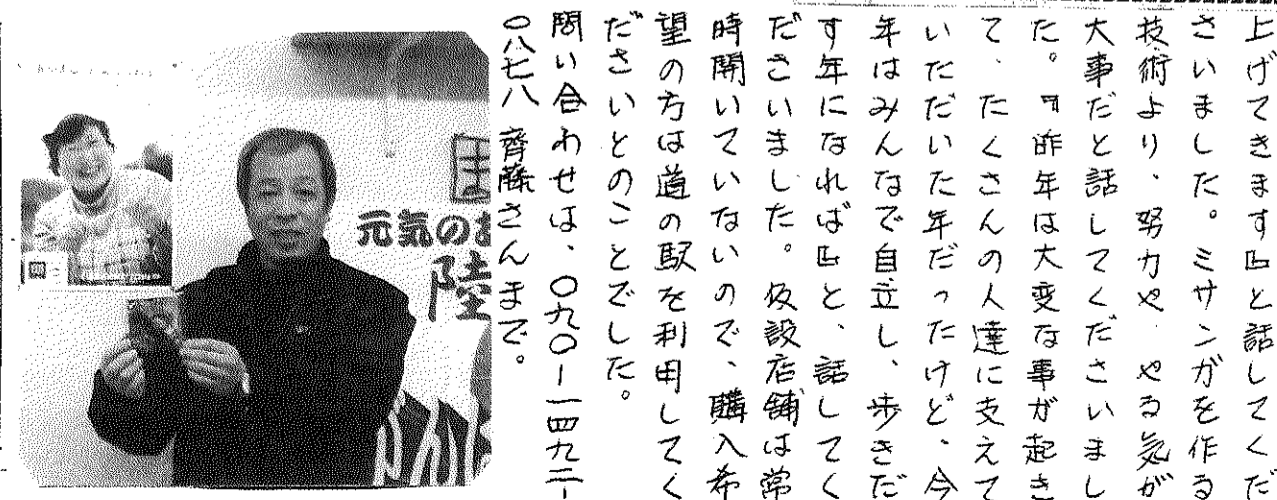 上げてきます』と話してくだ
さいました。ミサンガを作る
技術より、努力や、やる気が
大事だと話してくださいまし
た。『昨年は大変な事が起き
て、たくさんの人達に支えて
いただいた年だったけど、今
年はみんなで自立し、歩きだ
す年になれば』と、話してく
ださいました。仮設店舗は常
時開いていないので、購入希
望の方は道の駅を利用してく
ださいとのことでした。
問い合わせは、〇九〇ー一四九二ー
〇八七八 齊藤さんまで。
元気のお
陸